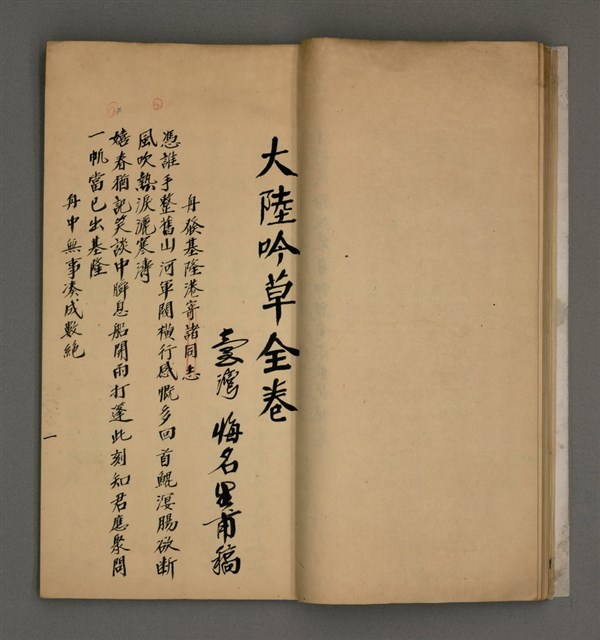 大陸吟草全卷
臺灣 悔名生甫稿
舟發基隆港寄諸同志
憑誰手整舊山河軍閥橫行感慨多回首鯤溟腸欲斷
風吹熱淚灑寒濤
嬉春猶記笑談中瞬息船開雨打蓬此刻知君應聚問
一帆當已出基隆
舟中無事湊成數絕
一